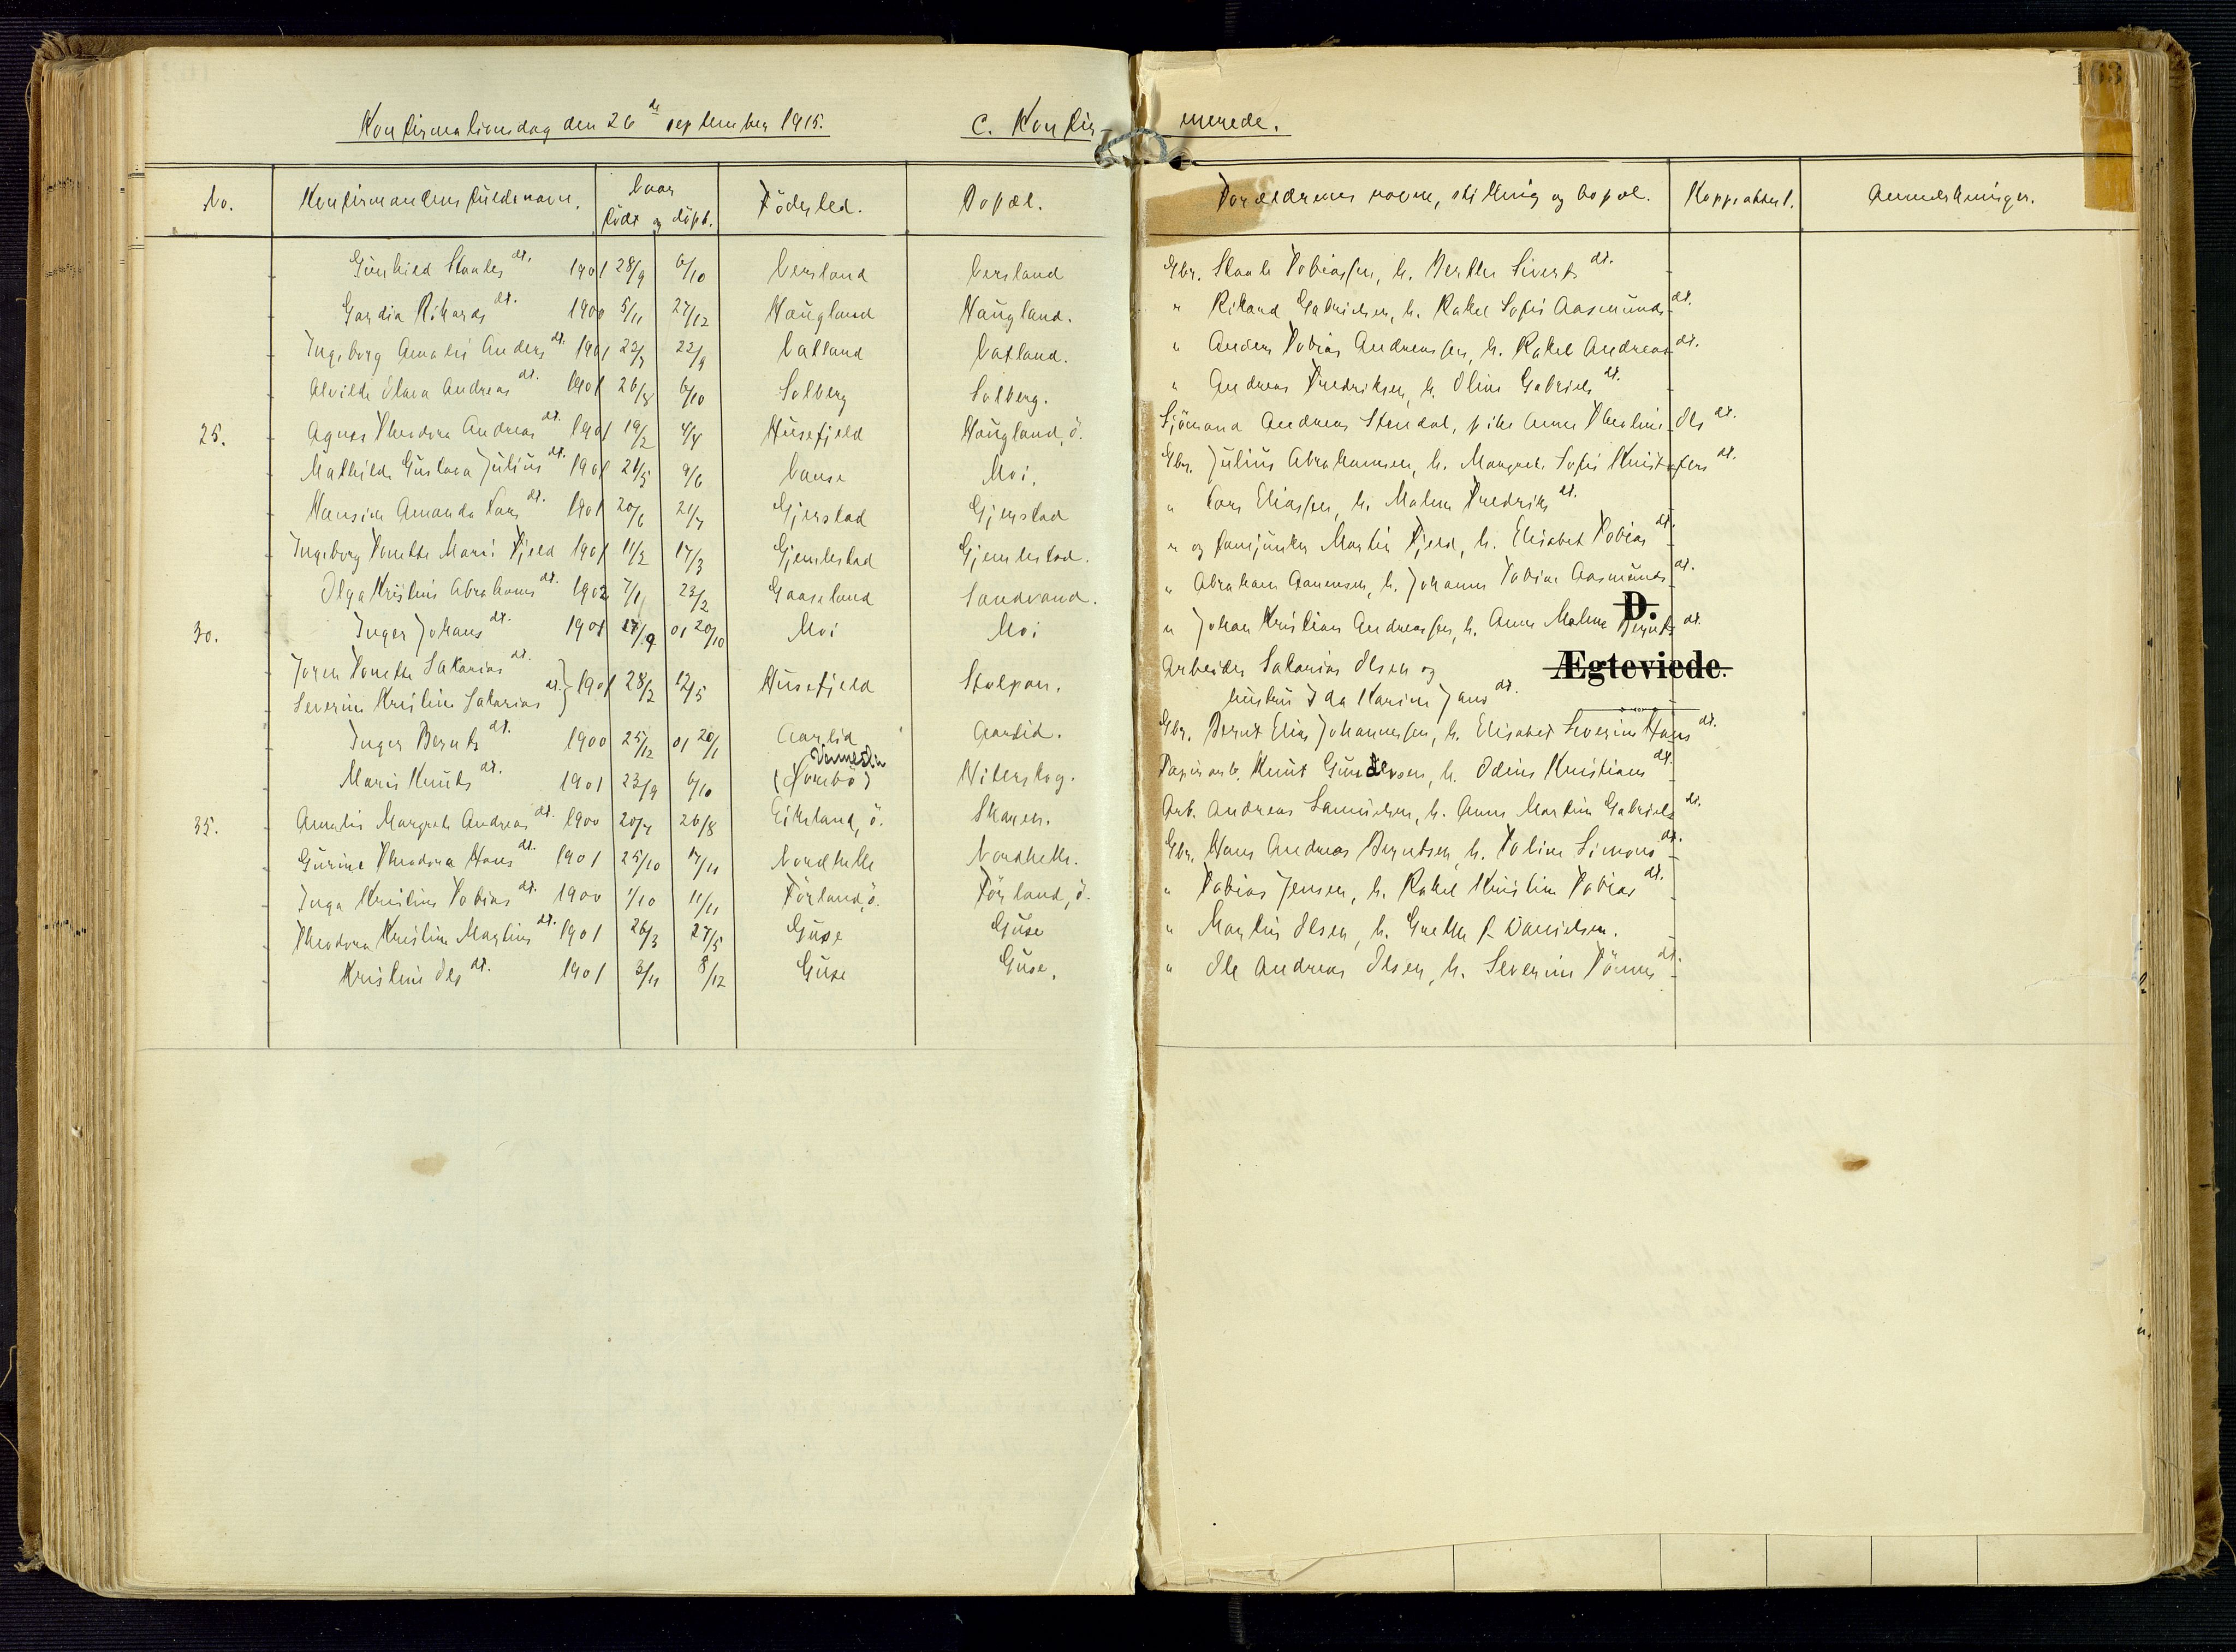 163
Konfirmationsdag den 26de september 1915. C. Konfir- merede.
No. Konfirmandens fulde navn. Naar født og døpt. Fødested. Bopæl. Forældrenes navne, stilling og bopæl. Koppeattest. Anmerkninger.
Gunhild Staales dt. 1901 28/9 6/10 Versland Versland Gbr. Staale Tobiassen, h. Berthe Siverts dt.
Gardia Rikards dt. 1900 5/11 27/12 Haugland Haugland. " Rikard Gabrielsen, h. Rakel Sofie Aasmunds dt.
Ingeborg Amalie Anders dt. 1901 22/9 Vatland Vatland. " Anders Tobias Andreassen, h. Rakel Andreas dt.
Alvilde Olava Andreas dt. 1901 26/8 6/10 Solberg Solberg. " Andreas Fredriksen, h. Oline Gabriels dt.
25. Agnes Theodora Andreas dt. 1901 19/2 4/4 Husefjeld Haugland, ö. Sjömand Andreas Stendal, pike Anne Theoline Ols dt.
Mathilde Gustava Julius dt. 1901 21/5 9/6 Vanse Moi. Gbr. Julius Abrahamsen, h. Margrete Sofie Kristofers dt.
Hansine Amanda Lars dt. 1901 20/6 21/7 Gjerstad Gjerstad " Lars Eliassen, h. Malene Fredriks dt.
Ingeborg Tonette Marie Fjeld 1901 11/2 17/3 Gjemlestad Gjemlestad. " og fanejunker Martin Fjeld, h. Elisabet Tobias dt.
Olga Kristine Abrahams dt. 1902 7/1 23/2 Gaaseland Sandvand. " Abraham Aanensen, h. Johanne Tobine Aasmunds dt.
D.
30. Inger Johans dt. 1901 17/9 01 20/10 Moi Moi " Johan Kristian Andreassen, h. Anne Malene Bernts dt.
Joren Tonette Sakarias dt. Arbeider Sakarias Olsen og
Ægteviede.
Severine Kristine Sakarias dt. } 1901 28/2 12/5 Husefjeld Stolpan. hustru Ida Karine Jans dt.
Inger Bernts dt. 1900 25/12 01 20/1 Aarlid Aarlid. Gbr. Bernt Elias Johannessen, h. Elisabet Severine Hans dt.
Vennesla
Marie Knuts dt. 1901 23/9 6/10 Hiterskog. Papirarb. Knut Gundersen, h. Odine Kristians dt.
35. Amalie Margrete Andreas dt. 1900 20/7 26/8 Eikeland, ö. Skagen. Arb. Andreas Samuelsen, h. Anne Martine Gabriels dt.
Gurine Theodora Hans dt. 1901 25/10 17/11 Nordhelle Nordhelle. Gbr. Hans Andreas Berntsen, h. Toline Simons dt.
Inga Kristine Tobias dt. 1900 1/10 11/11 Förland, ö. Förland, ö. " Tobias Jensen, h. Rakel Kristine Tobias dt.
Theodora Kristine Martins dt. 1901 26/3 27/5 Guse Guse " Martin Olsen, h. Grethe f. Danielsen.
Kristine Ols dt. 1901 3/11 8/12 Guse Guse. " Ole Andreas Olsen, h. Severine Tönnes dt.